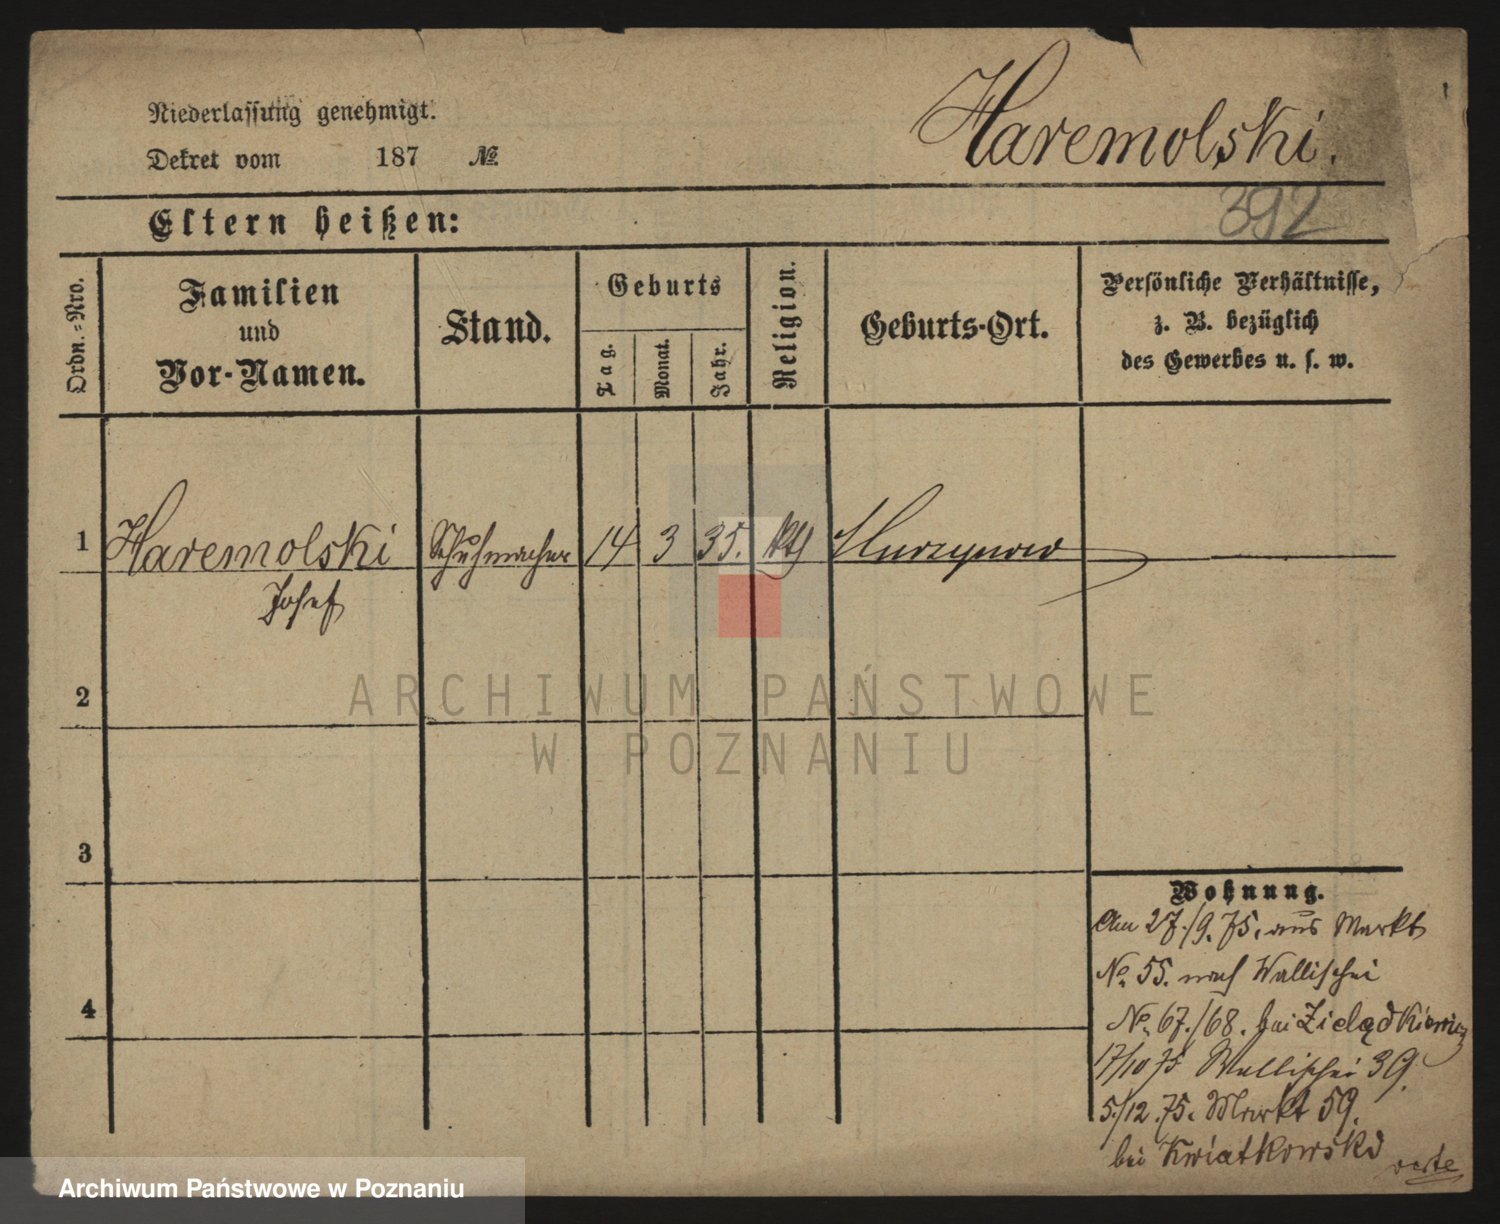 Niederlassung genehmigt.
Dekret vom 187 №
Haremolski.
392
Eltern heißen:
Ordn.-Nro.
Familien
und
Vor-Namen.
Stand.
Geburts
Tag.
Monat.
Jahr.
Religion.
Geburts-Ort.
Persönliche Verhältnisse,
z. B. bezüglich
des Gewerbes u. s. w.
1 Haremolski Schuhmacher 14 3 35. kth
Josef
2
3
4
Wohnung.
Am 27./9. 75. aus Markt
No. 55. nach Wallischei
No. 67./68. bei Zielądkiewicz
17/10 75 Wallischei 39.
5./12. 75. Markt 59.
bei Kwiatkowski
verte
ARCHIWUM PAŃSTWOWE
W POZNANIU
Archiwum Państwowe w Poznaniu